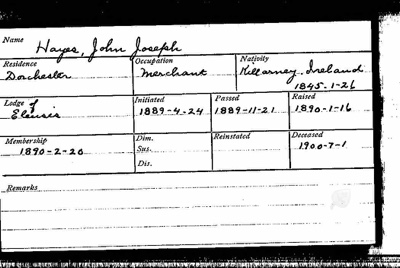 Name Hayes, John Joseph
Residence Occupation Nativity
Dorchester Merchant Killarney, Ireland
1845-1-26
Lodge of Initiated Passed Raised
Eleusis 1889-4-24 1889-11-21 1890-1-16
Membership Dim. Reinstated Deceased
1890-2-20 Sus. 1900-7-1
Dis.
Remarks